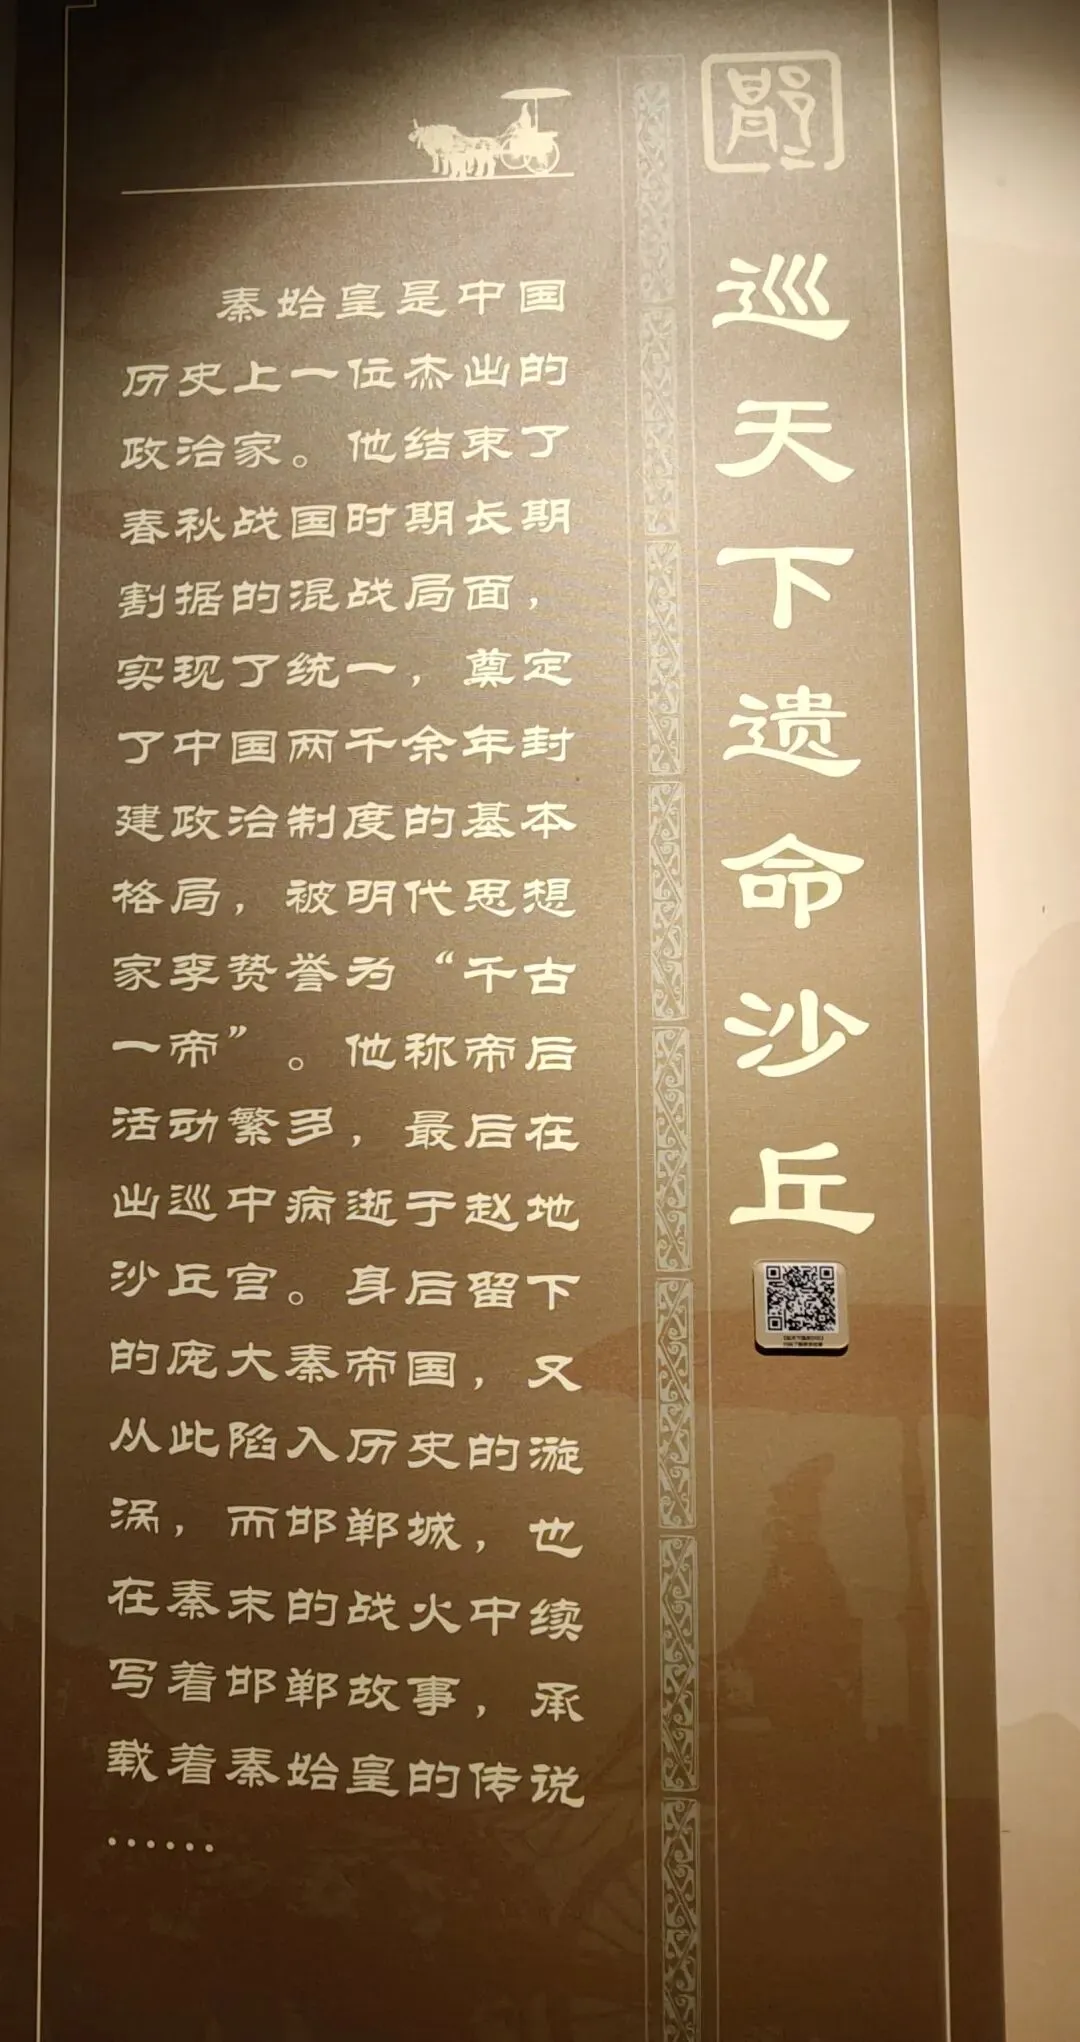 巡天下遗命沙丘
秦始皇是中国
历史上一位杰出的
政治家。他结束了
春秋战国时期长期
割据的混战局面，
实现了统一，奠定
了中国两千余年封
建政治制度的基本
格局，被明代思想
家李贽誉为“千古
一帝”。他称帝后
活动繁多，最后在
出巡中病逝于赵地
沙丘宫。身后留下
的庞大秦帝国，又
从此陷入历史的漩
涡，而邯郸城，也
在秦末的战火中续
写着邯郸故事，承
载着秦始皇的传说
······